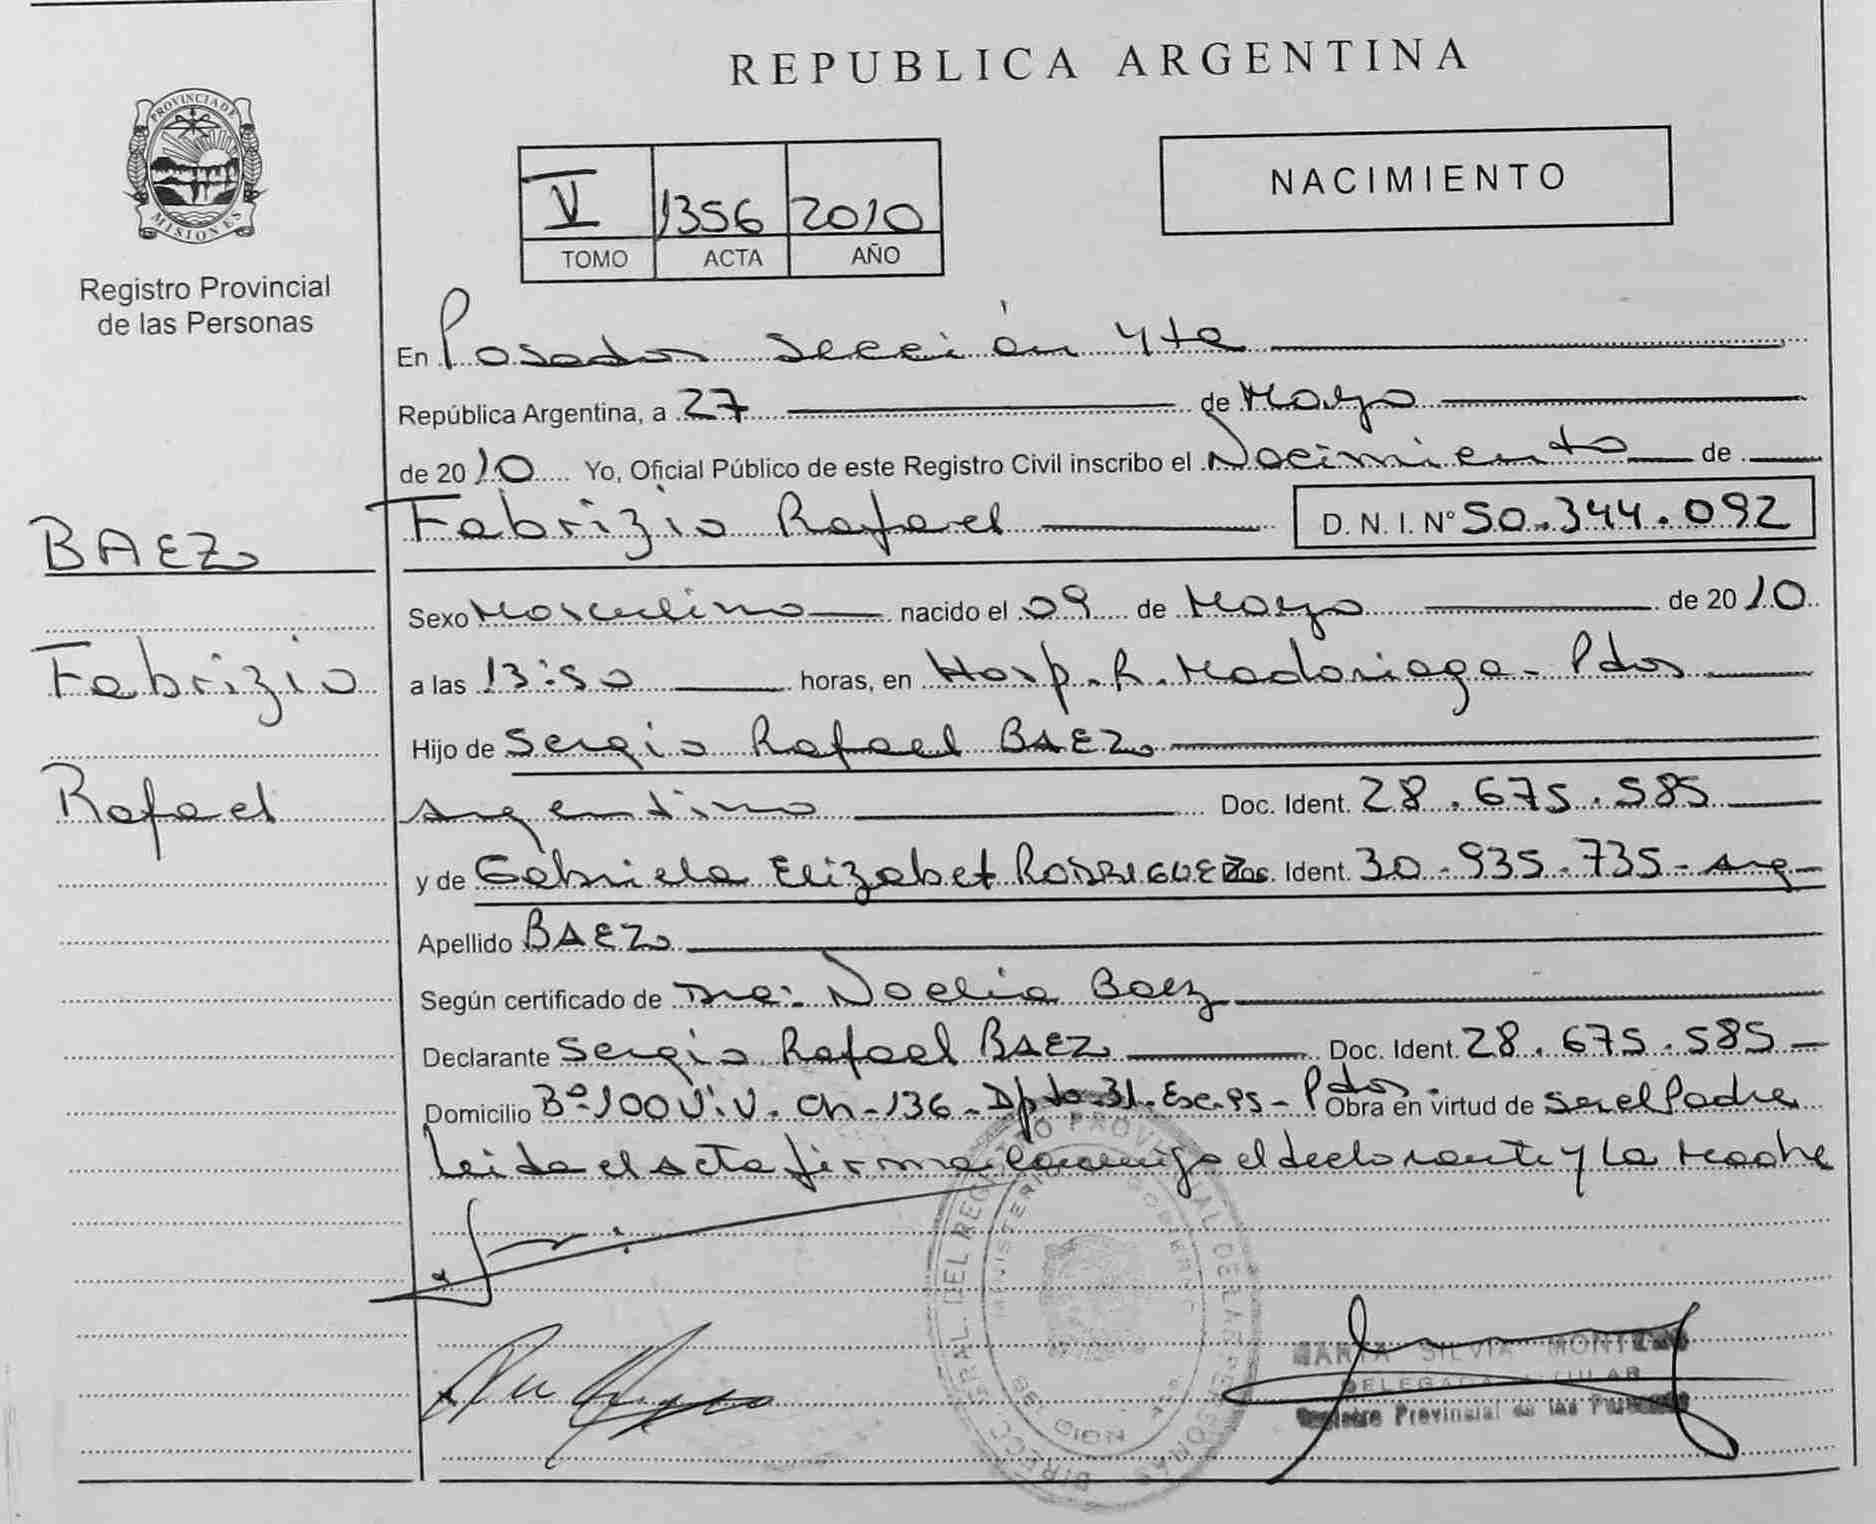 REPUBLICA ARGENTINA
PROVINCIA DE
MISIONES
Registro Provincial
de las Personas
V 1356 2010
TOMO ACTA AÑO
NACIMIENTO
En Posadas Sección 4ta
República Argentina, a 27 de Mayo
de 2010 Yo, Oficial Público de este Registro Civil inscribo el Nacimiento de
Fabrizio Rafael D. N. I. N° 50.344.092
BAEZ
Fabrizio
Rafael
Sexo Masculino nacido el 09 de Mayo de 2010
a las 13:50 horas, en Hosp. R. Madariaga - Pdas
Hijo de Sergio Rafael BAEZ
Argentino Doc. Ident. 28.675.585
y de Gabriela Elizabet RODRIGUEZ Doc. Ident. 30.935.735 - Arg
Apellido BAEZ
Según certificado de Dra: Noelia Baez
Declarante Sergio Rafael BAEZ Doc. Ident. 28.675.585
Domicilio Bº 100 Viv. Ch-136 - Dpto. 31. Esc. - Pdas Obra en virtud de ser el Padre
Leida el acta firma conmigo el declarante y La Madre
MARTA SILVIA
DELEGADA TITULAR
Registro Provincial de las Personas